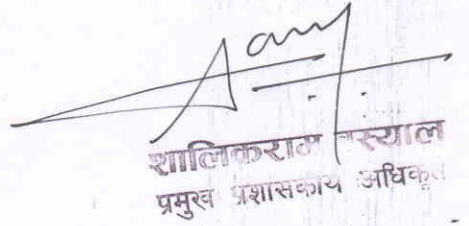 शालिकराम
प्रमुख प्रशासकीय अधिकृत